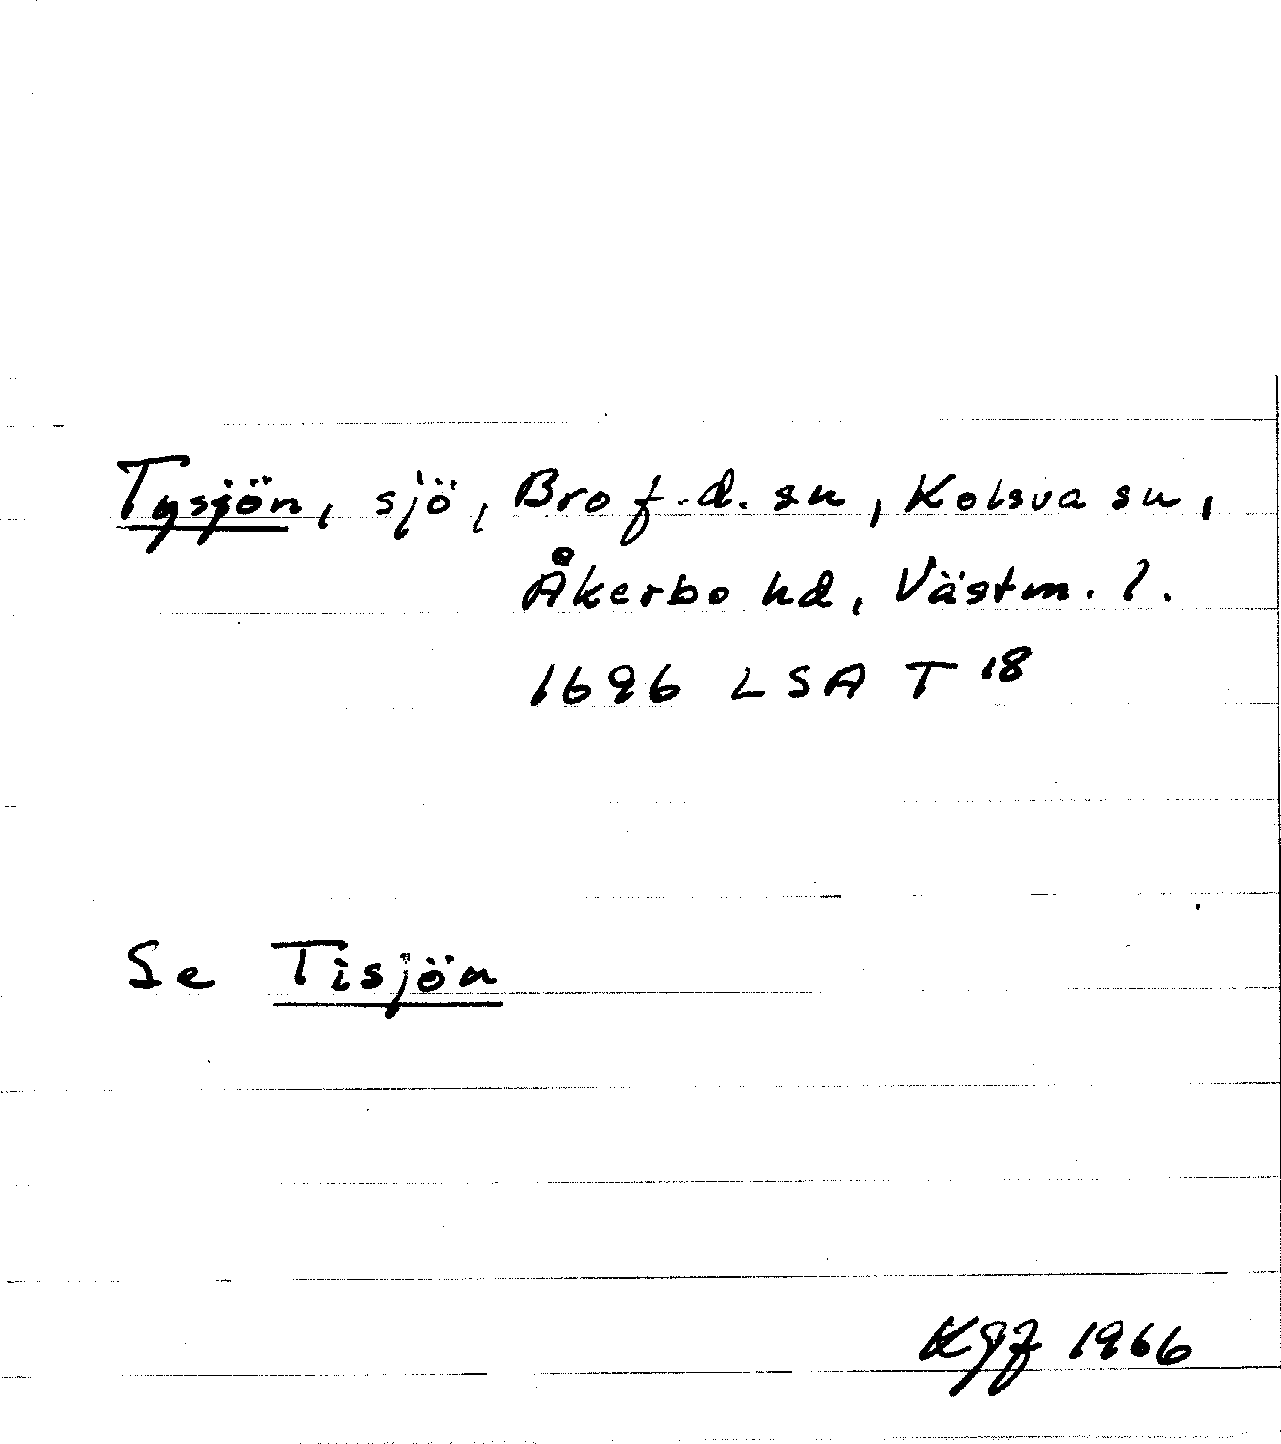 Tysjön, sjö, Bro f.d. sn, Kolsva sn,
Åkerbo hd, Västm. l.
1696 LSA T 18
Se Tisjön
KgF 1966